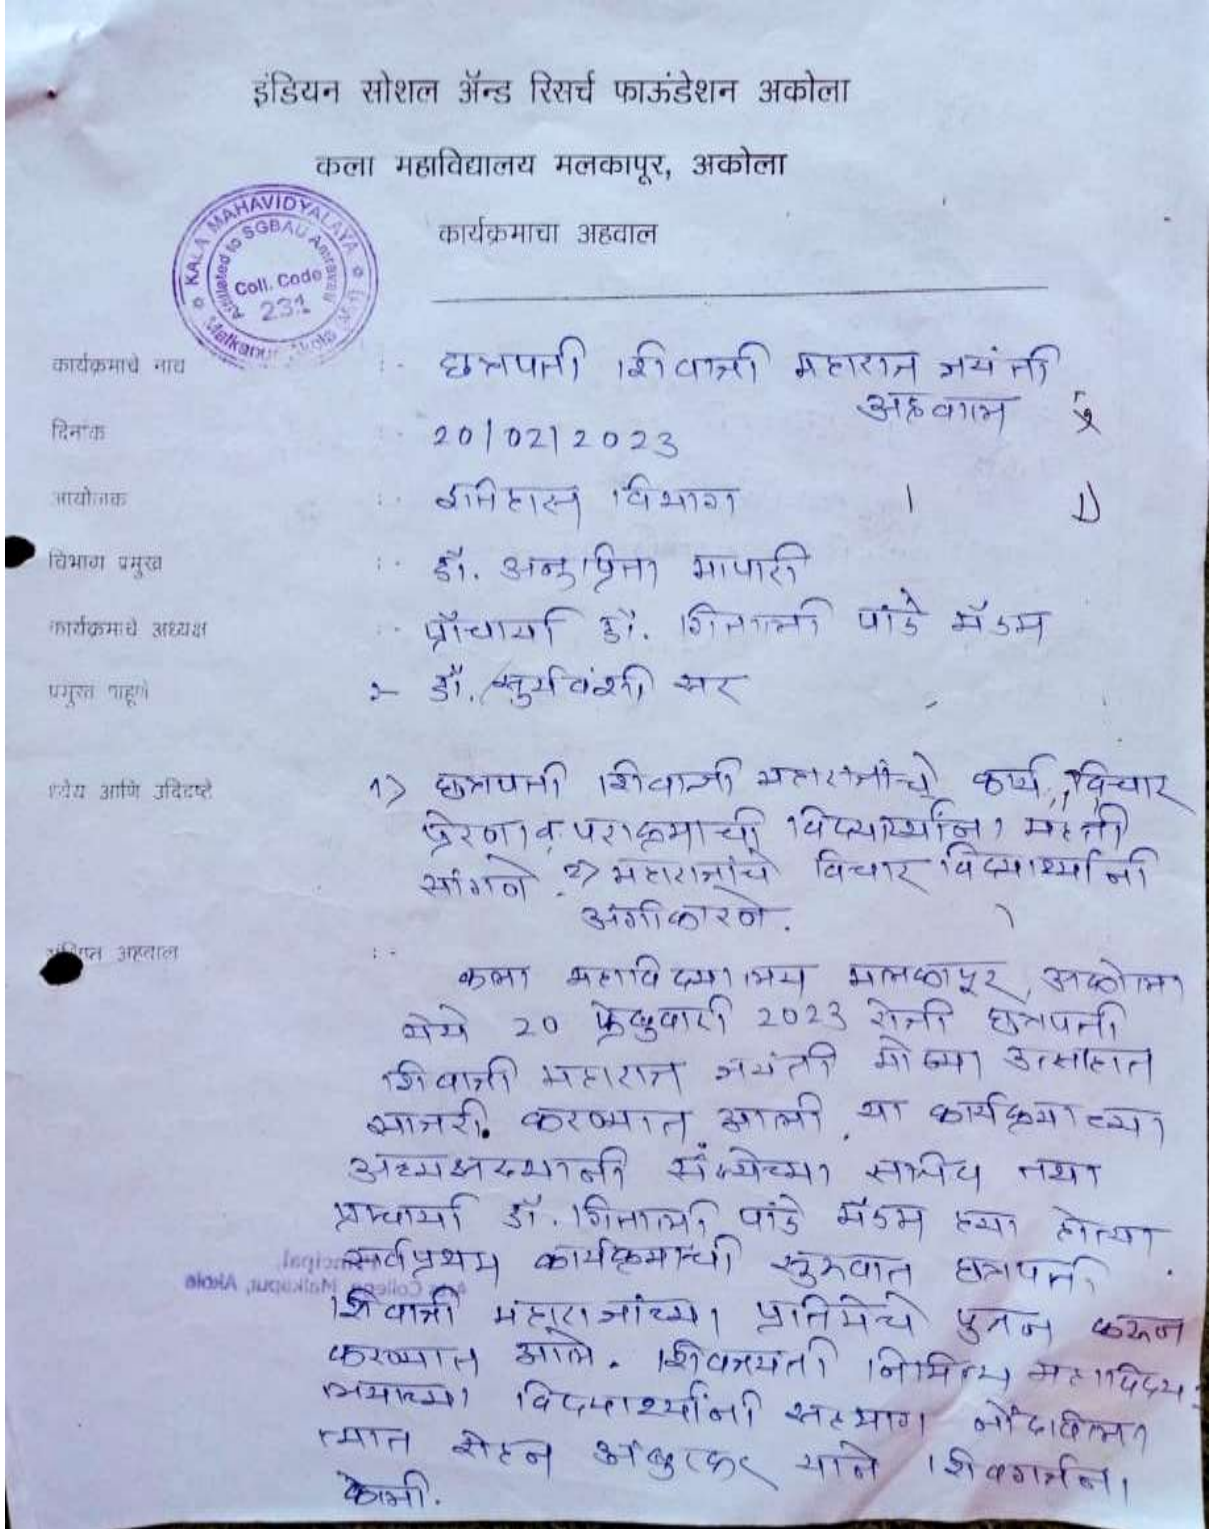 इंडियन सोशल ॲन्ड रिसर्च फाऊंडेशन अकोला
कला महाविद्यालय मलकापूर, अकोला
कार्यक्रमाचा अहवाल
KALA MAHAVIDYALAYA
Affiliated to SGBAU Amravati
Coll. Code
231
Malkapur, Akola
कार्यक्रमाचे नाव :- छत्रपती शिवाजी महाराज जयंती
अहवाल
दिनांक :- 20/02/2023
आयोजक :- इतिहास विभाग
विभाग प्रमुख :- डॉ. अनुप्रिता मापारी
कार्यक्रमाचे अध्यक्ष :- प्राँचार्या डॉ. शिताली पांडे मॅडम
प्रमुख पाहूणे :- डॉ. सुर्यवंशी सर
ध्येय आणि उदिदष्टे १) छत्रपती शिवाजी महाराजांचे कार्य, विचार
प्रेरणा व पराक्रमाची विद्यार्थ्यांना माहिती
सांगने २) महाराजांचे विचार विद्यार्थ्यांनी
अंगीकारने.
संक्षिप्त अहवाल :-
कला महाविद्यालय मलकापूर, अकोला
येथे 20 फेब्रुवारी 2023 रोजी छत्रपती
शिवाजी महाराज जयंती मोठ्या उत्साहात
साजरी. करण्यात आली. या कार्यक्रमाच्या
अध्यक्षस्थानी संस्थेच्या सचिव तथा
प्राचार्या डॉ. शिताली पांडे मॅडम ह्या होत्या
सर्वप्रथम कार्यक्रमाची सुरुवात छत्रपती
शिवाजी महाराजांच्या प्रतिमेचे पुजन करून
करण्यात आले. शिवजयंती निमित्य महाविद्या
लयाच्या विद्यार्थ्यांनी सहभाग नोंदविला
त्यात रोहन याने शिवगर्जना
केली.